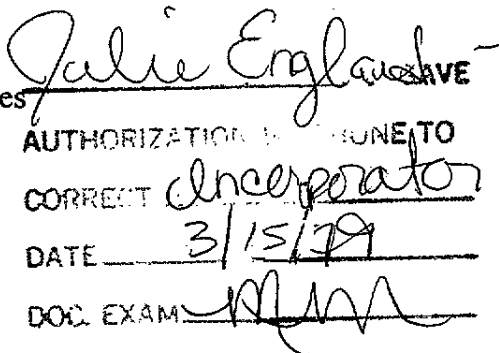 Julie England GAVE
es
AUTHORIZATION BY PHONE TO
CORRECT Incorporator
DATE 3/15/79
DOC. EXAM